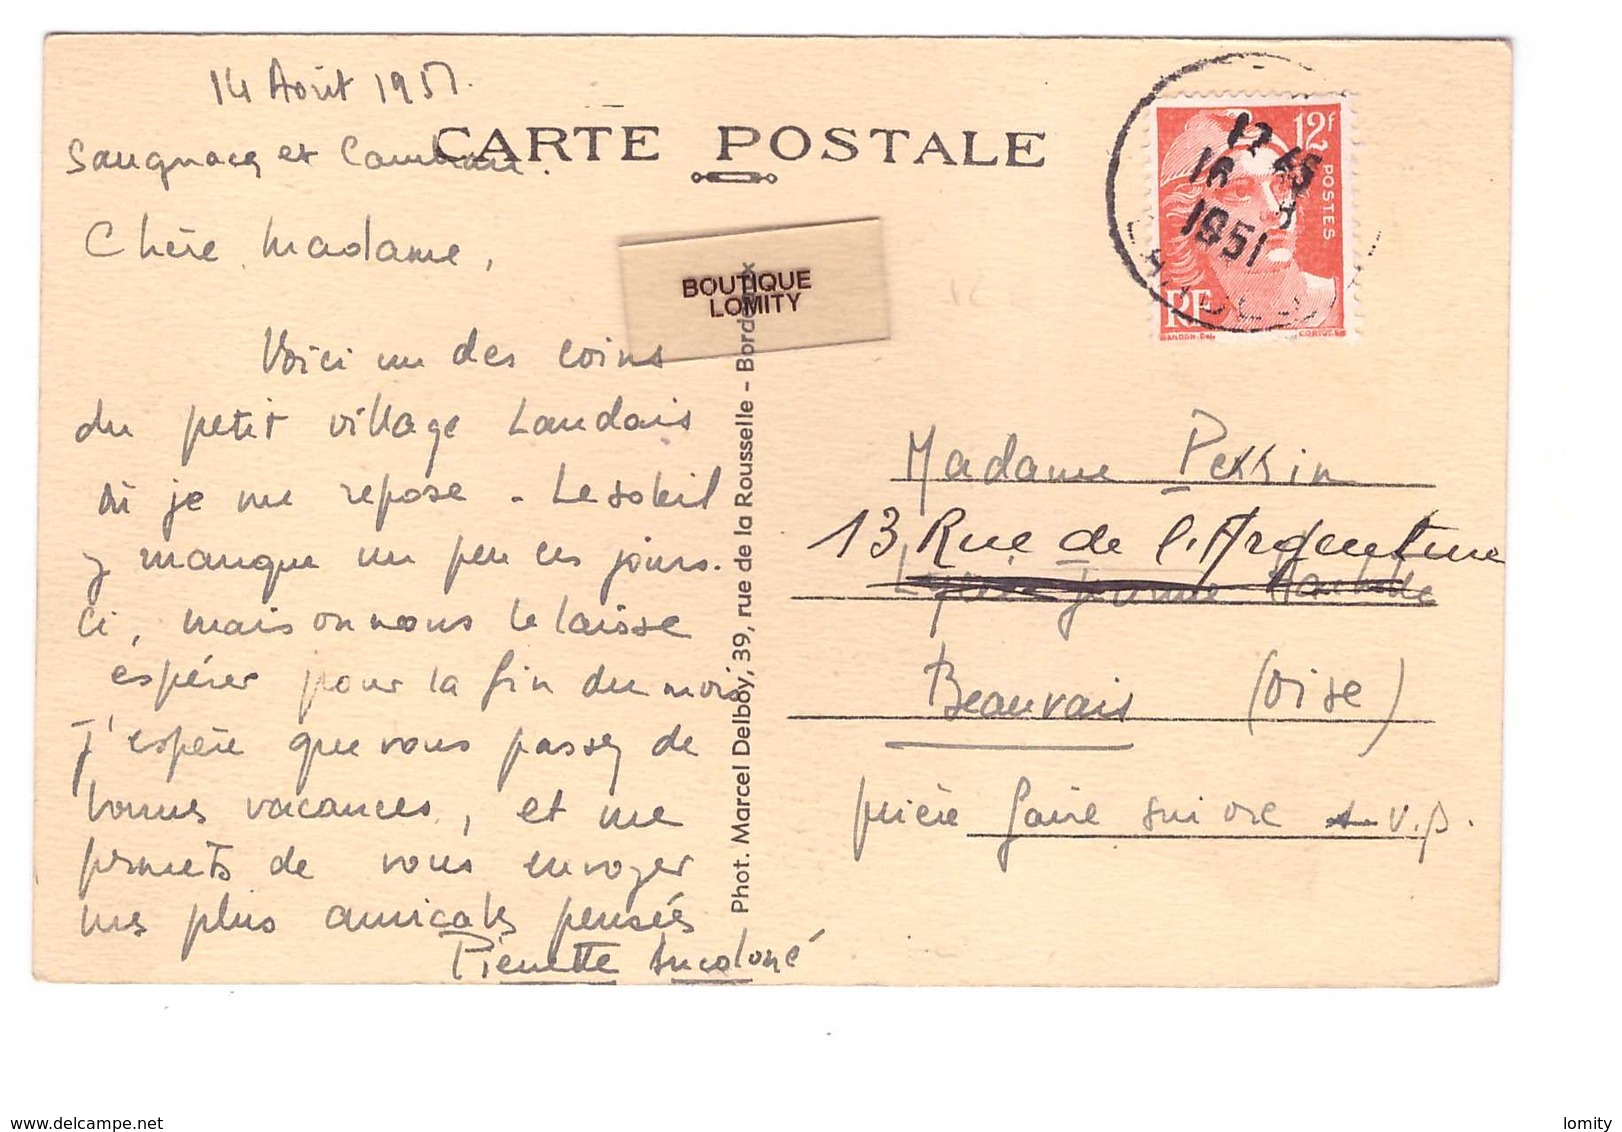 14 Août 1951.
Saugnacq et Cambran.
CARTE POSTALE
Chère Madame,
Voici un des coins
du petit village Landais
où je me repose. Le soleil
y manque un peu ces jours.
ci, mais on nous le laisse
éspérer pour la fin du mois
J'espère que vous passez de
bonnes vacances, et me
permets de vous envoyer
mes plus amicales pensées
Pierrette
BOUTIQUE
LOMITY
Phot. Marcel Delboy, 39, rue de la Rousselle - Bordeaux
12f
POSTES
RF
GANDON DEL.
CORTOT SC.
17 45
16 8
1951
Madame Perrin
13 Rue de l'Argentine
Lycée Jeanne Hachette
Beauvais (Oise)
prière faire suivre s.v.p.
www.delcampe.net
lomity